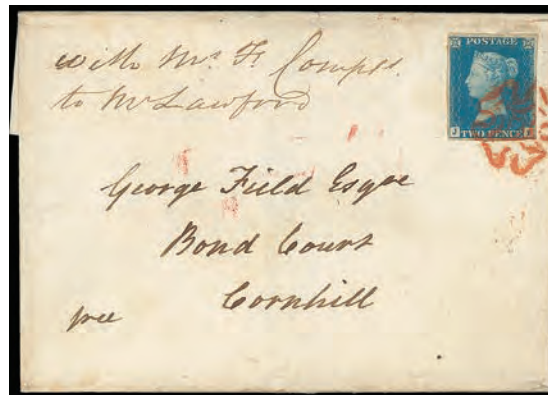 with Mr F Compts.
to Mr Lawford
POSTAGE
J TWO PENCE
George Field Esqre
Bond Court
Cornhill
free